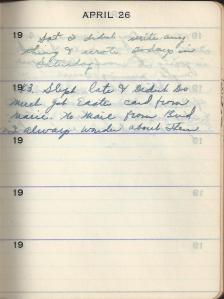 APRIL 26
19 Sat I didnt write any
thing & wrote Sodays in
Saturday
19 63. Slept late & Didnt Do
much got Easter card from
Marie. No More from Bud
I always wonder about Them
19
19
19